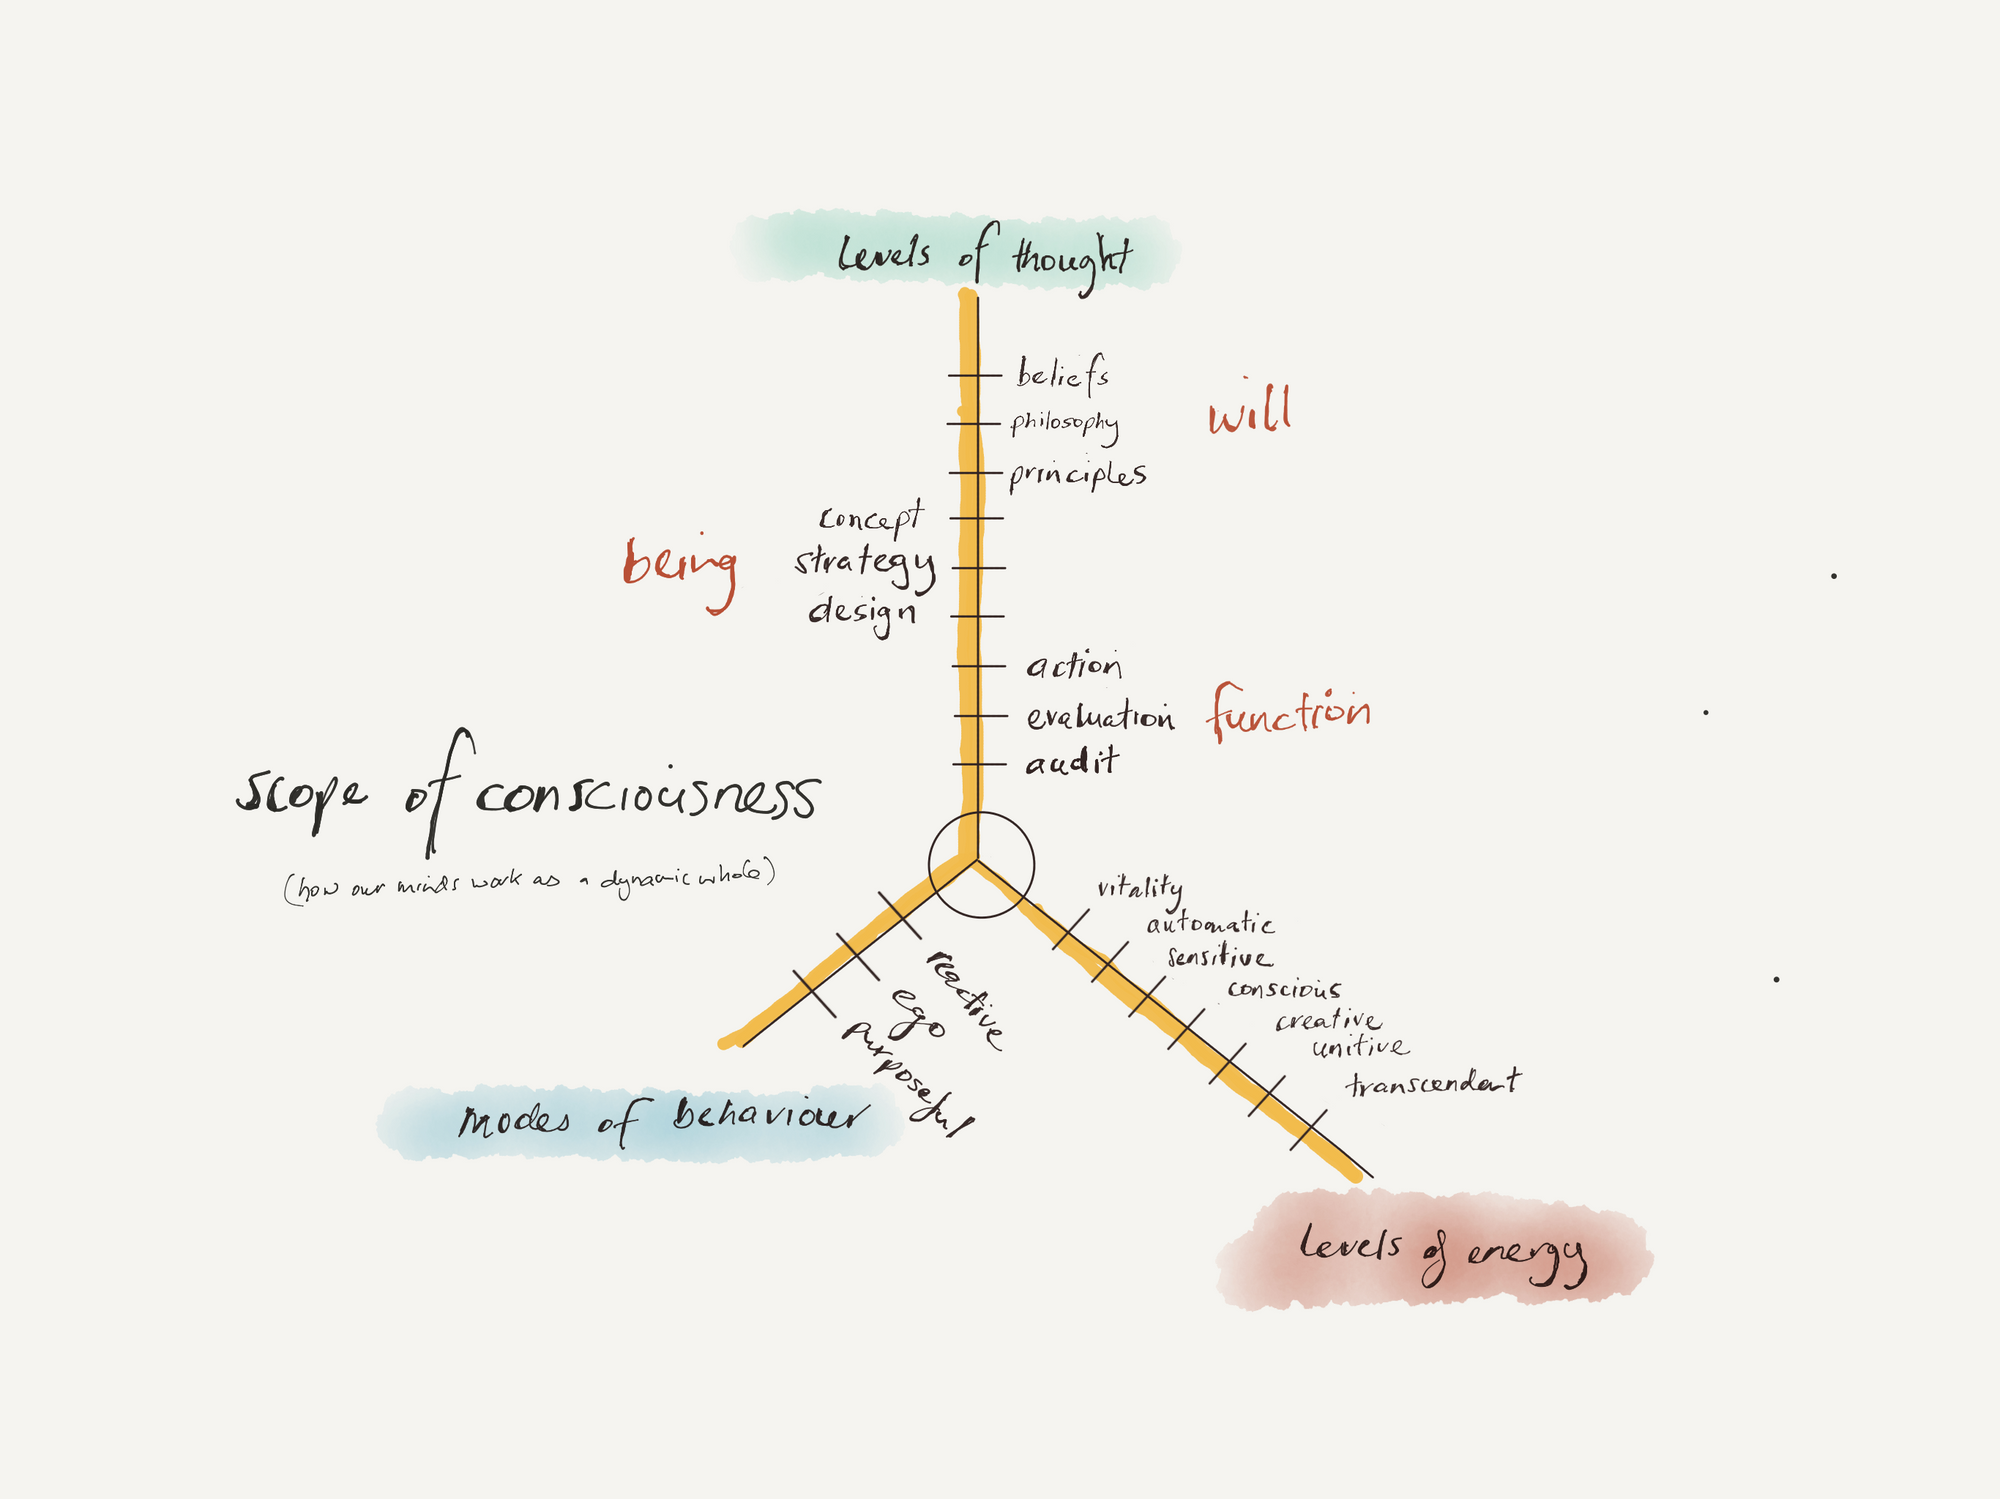 levels of thought
beliefs
philosophy
will
principles
concept
strategy
being
design
action
evaluation
function
audit
scope of consciousness
(how our minds work as a dynamic whole)
reactive
ego
purposeful
modes of behaviour
vitality
automatic
sensitive
conscious
creative
unitive
transcendent
levels of energy